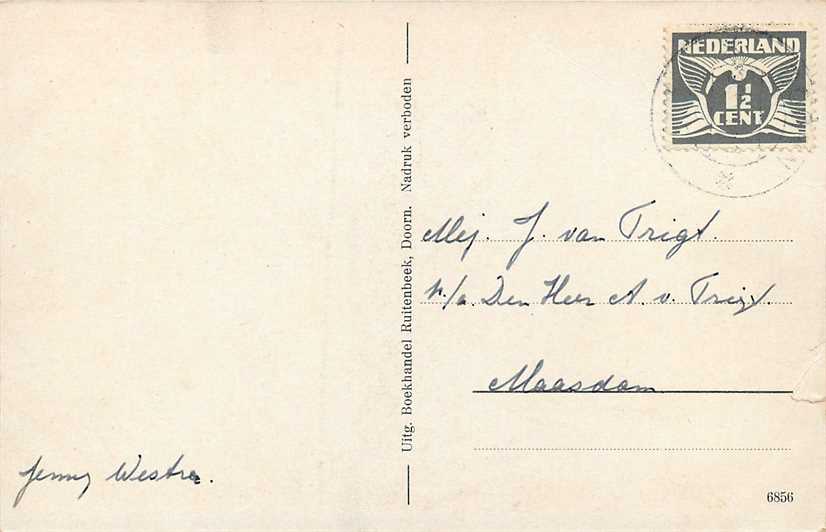 NEDERLAND
1½
CENT
Uitg. Boekhandel Ruitenbeek, Doorn. Nadruk verboden
Mej. J. van Trigt.
p/a. Den Heer A. v. Trigt.
Maasdam
Jenny Westra.
6856